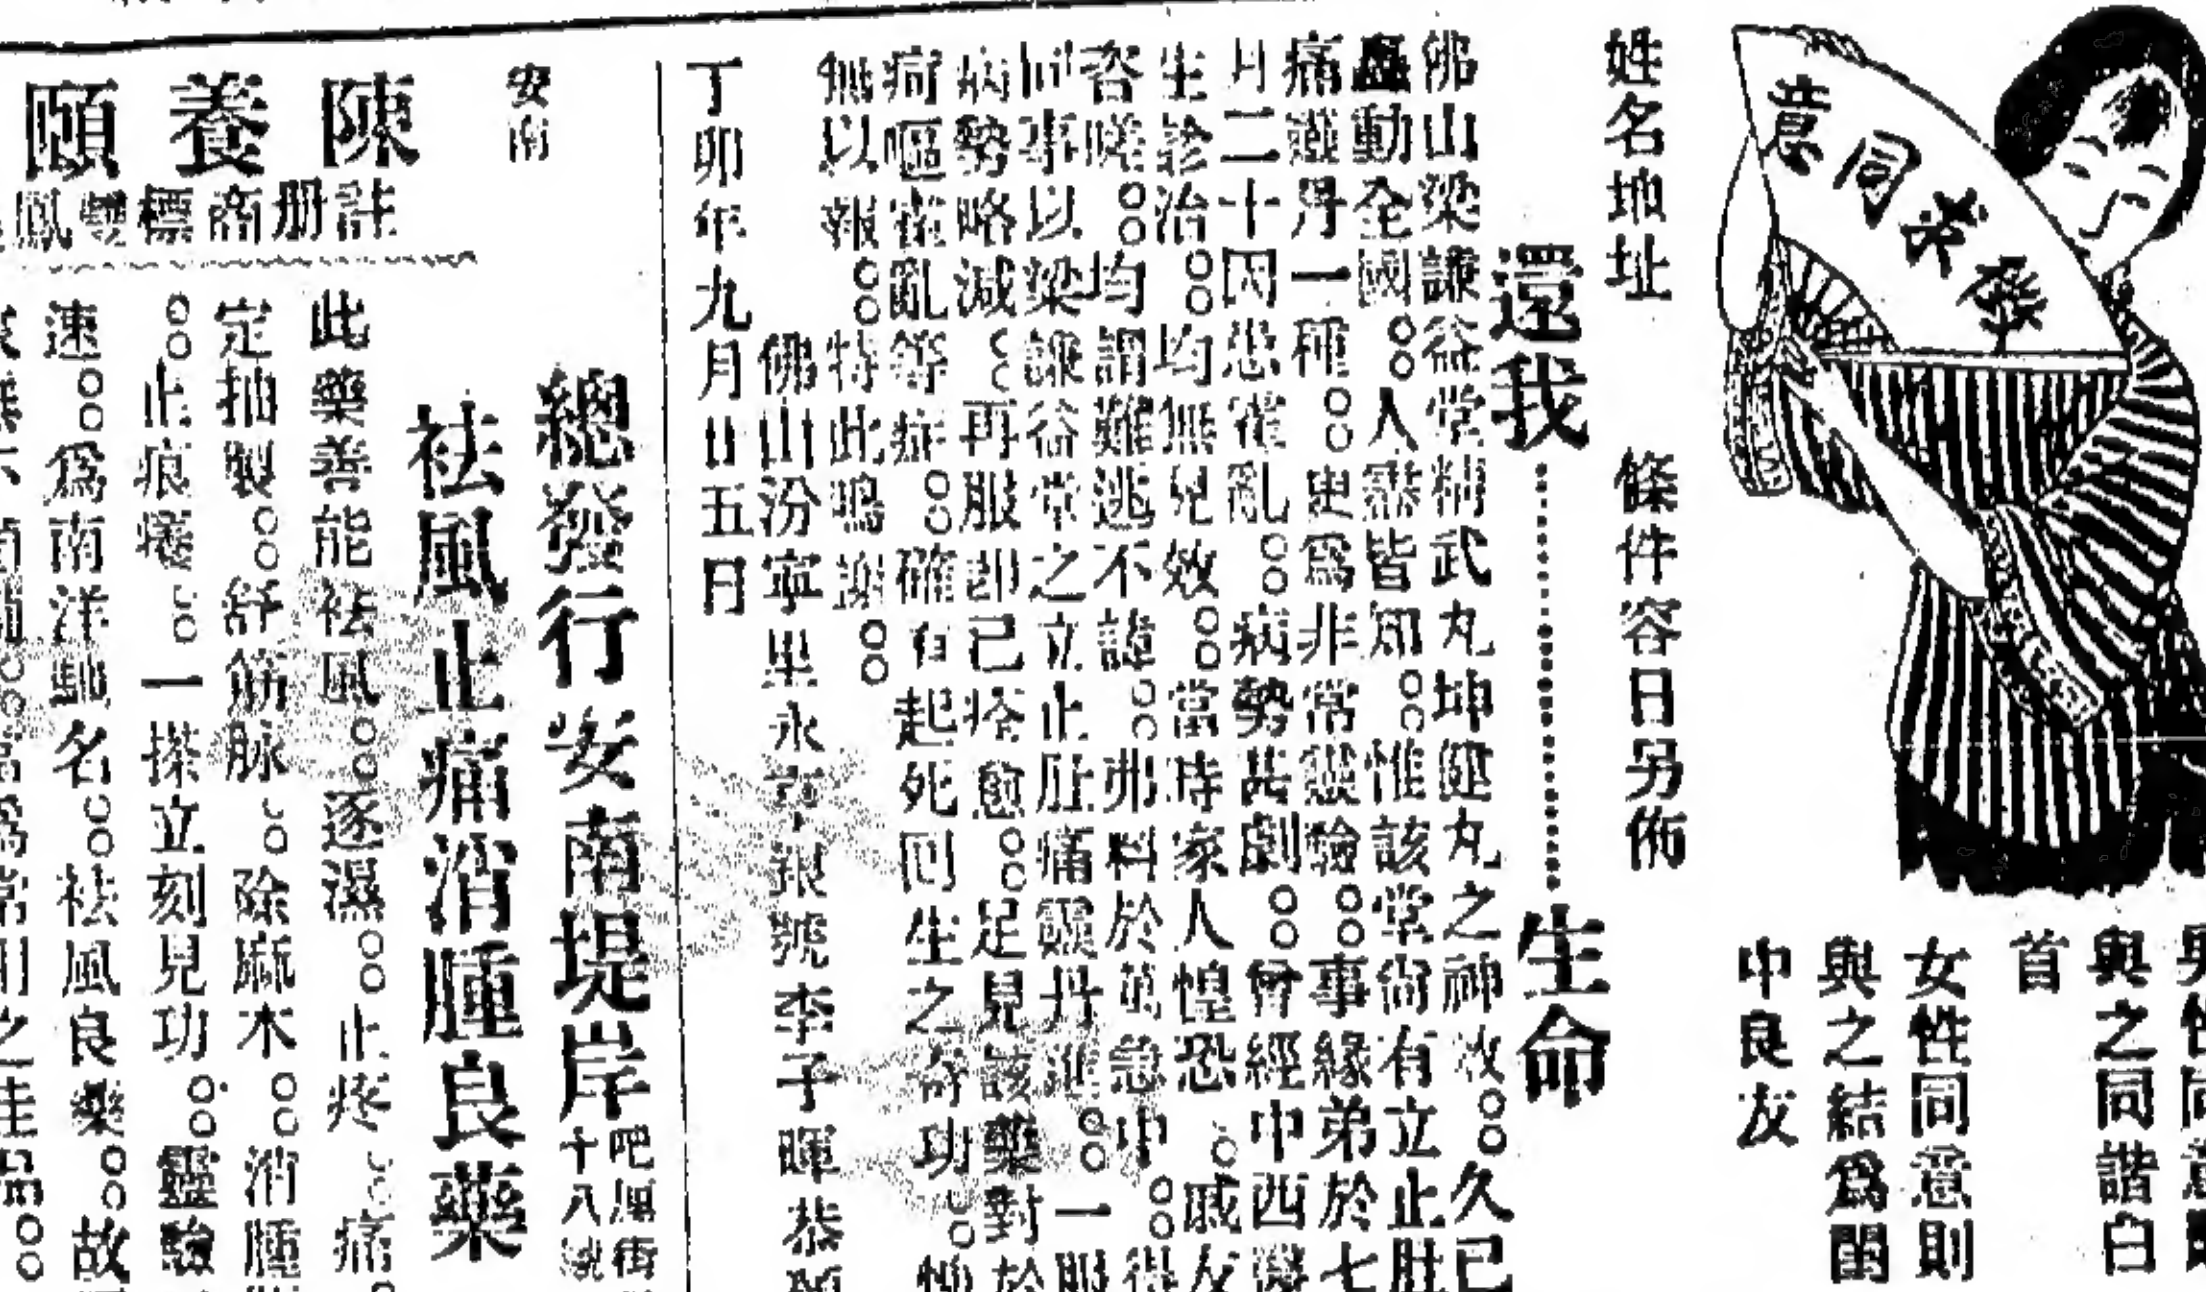 發求同意
與之同諧白
首
女性同意則
與之結爲閨
中良友
姓名地址
條件容日另佈
還我⋯⋯⋯⋯生命
佛山梁謙益堂精武丸坤健丸之神效。。久已
轟動全國。。人憖皆知。。惟該堂尙有立止肚
痛靈丹一種。。更爲非常靈驗。。事緣弟於七
月二十因患霍亂。。病勢甚劇。。曾經中西醫
生診治。。均無見效。。當時家人惶恐。。戚友
咨嗟。。均謂難逃不諱。。弗料於萬急中。。得
同事以梁謙益堂之立止肚痛靈丹進。。一服
病勢略減。。再服即已痊愈。。足見該藥對於
痾嘔霍亂等症。。確有起死回生之奇功。。
無以報。。特此鳴謝。。
佛山汾寧里永 銀號李子暉恭
丁卯年九月廿五日
安南
陳養頤
註册商標雙鳳
總發行安南堤岸
街
十八號
祛風止痛消腫良藥
此藥善能祛風。。逐濕。。止疼。。痛。
定抽製。。舒筋脉。。除麻木。。消腫
。。止痕癢。。一搽立刻見功。。靈驗
速。。爲南洋馳名。。祛風良藥。。故